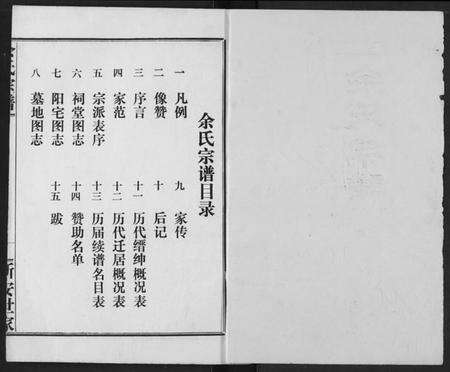 余氏宗谱目录
一 凡例
二 像赞
三 序言
四 家范
五 宗派表序
六 祠堂图志
七 阳宅图志
八 墓地图志
九 家传
十 后记
十一 历代缙绅概况表
十二 历代迁居概况表
十三 历届续谱名目表
十四 赞助名单
十五 跋
新安世家